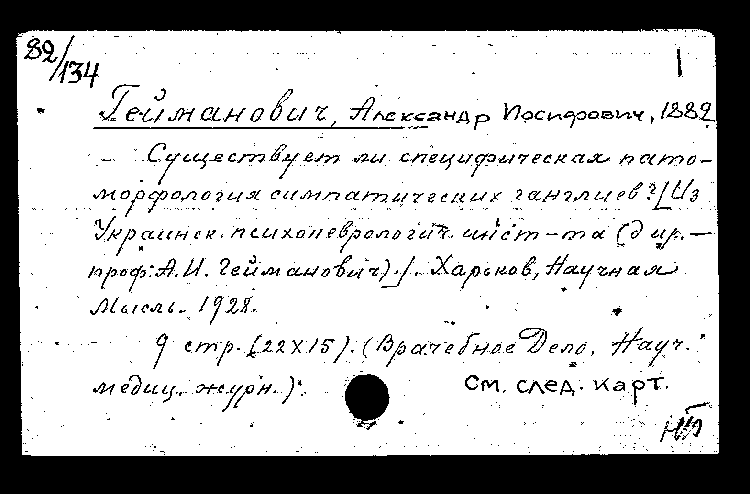 82/134
1
Гейманович, Александр Иосифович, 1882
– Существует ли специфическая пато-
морфология симпатических ганглиев? [Из
Украинск. психоневрологич. инст-та (дир.–
проф. А.И. Гейманович)]. Харьков, Научная
Мысль. 1928.
9 стр. [22х15]. (Врачебное Дело, Науч.
медиц. журн.).
См. след. карт.